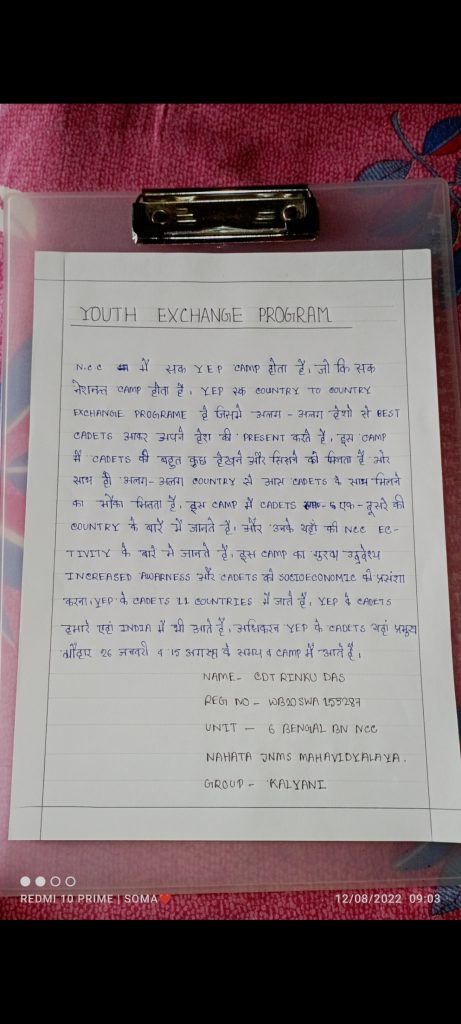 YOUTH EXCHANGE PROGRAM
N.C.C में सक YEP CAMP होता हैं, जो कि सक
नेशनल CAMP होता हैं, YEP एक COUNTRY TO COUNTRY
EXCHANGE PROGRAME हैं जिसमे अलग - अलग देशो से BEST
CADETS आकर अपने देश की PRESENT करते हैं, इस CAMP
में CADETS को बहुत कुछ देखने और सिखने को मिलता हैं और
साथ ही अलग-अलग COUNTRY से आए CADETS के साथ मिलने
का मौका मिलता हैं, इस CAMP में CADETS एक-दूसरे की
COUNTRY के बारें में जानते हैं, और उनके यहाँ की NCC EC-
TIVITY के बारें मे जानते हैं, इस CAMP का मुख्य उद्देश्य
INCREASED AWARNESS और CADETS की SOCIOECONOMIC की प्रशंशा
करना, YEP के CADETS 11 COUNTRIES में जाते हैं, YEP के CADETS
हमारे यहां INDIA में भी आते हैं, अधिकतर YEP के CADETS यहां प्रमुख
26 जनवरी व 15 अगस्त के समय CAMP में आते हैं,
NAME- CDT RINKU DAS
REG NO - WB20SWA155287
UNIT - 6 BENGAL BN NCC
NAHATA JNMS MAHAVIDYALAYA.
GROUP - KALYANI
REDMI 10 PRIME | SOMA❤️
12/08/2022 09:03